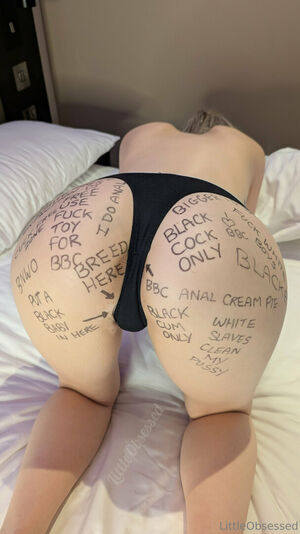 FREE
USE
FUCK
TOY
FOR
BBC
I DO ANAL
BNWO
BREED
HERE
PUT A
BLACK
BABY
IN HERE
BIGGER
BLACK
COCK
ONLY
BBC
BLACK
BBC ANAL CREAM PIE
BLACK
CUM
ONLY
WHITE
SLAVES
CLEAN
MY
PUSSY
LittleObsessed
LittleObsessed